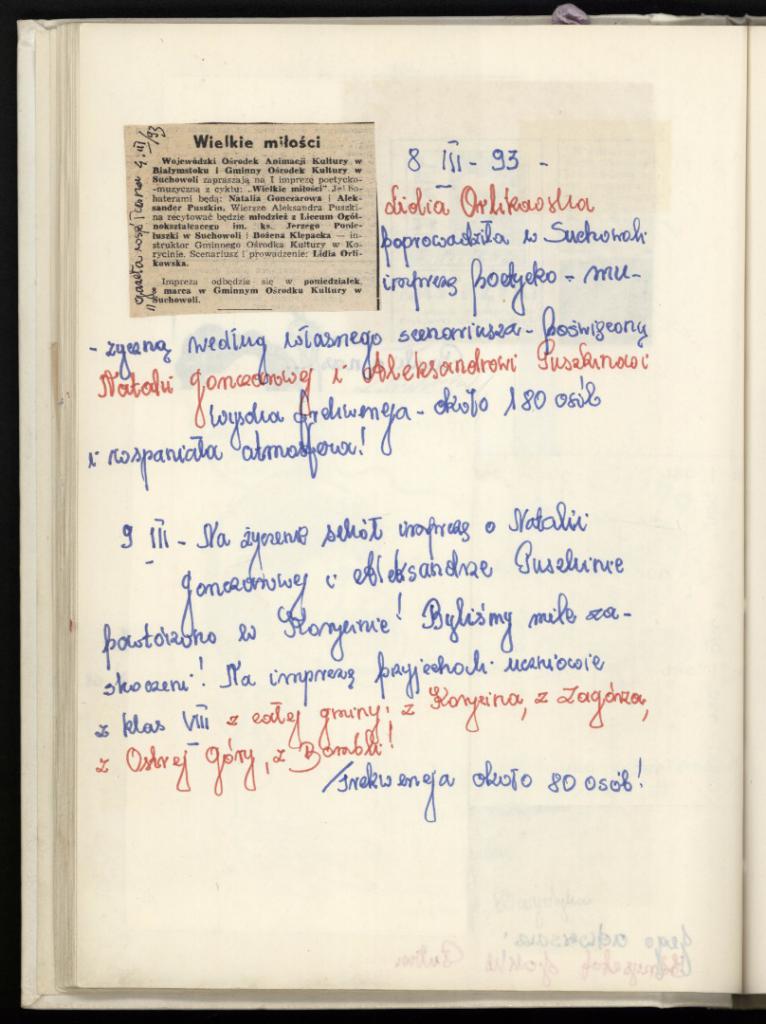 Wielkie miłości
Wojewódzki Ośrodek Animacji Kultury w
Białymstoku i Gminny Ośrodek Kultury w
Suchowoli zapraszają na I imprezę poetycko-
-muzyczną z cyklu: „Wielkie miłości". Jej bo-
haterami będą: Natalia Gonczarowa i Alek-
sander Puszkin. Wiersze Aleksandra Puszki-
na recytować będzie młodzież z Liceum Ogól-
nokształcącego im. ks. Jerzego Popie-
łuszki w Suchowoli i Bożena Klepacka — in-
struktor Gminnego Ośrodka Kultury w Ko-
rycinie. Scenariusz i prowadzenie: Lidia Orli-
kowska.
Impreza odbędzie się w poniedziałek,
8 marca w Gminnym Ośrodku Kultury w
Suchowoli.
gazeta 4. III /93
8 III - 93 -
Lidia Orlikowska
poprowadziła w Suchowoli
imprezę poetycko - mu-
- zyczną według własnego scenariusza - poświęconą
Natalii Gonczarowej i Aleksandrowi Puszkinowi
Wysoka frekwencja - około 180 osób
i wspaniała atmosfera!
9 III - Na życzenie szkół imprezę o Natalii
Gonczarowej i Aleksandrze Puszkinie
powtórzono w Korycinie! Byliśmy mile za-
skoczeni! Na imprezę przyjechali uczniowie
z klas VIII z całej gminy: z Korycina, z Zagórza,
z Ostrej Góry, z Bombli!
Frekwencja około 80 osób!